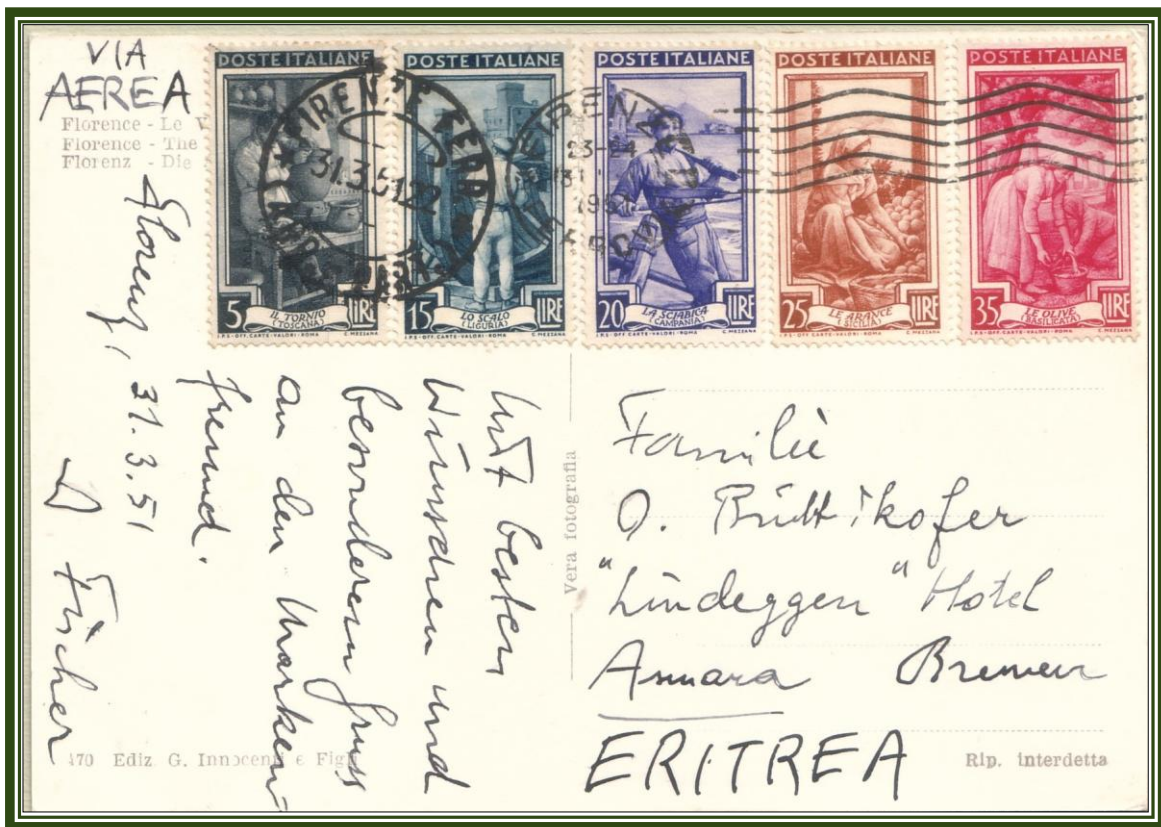 VIA
AEREA
Florence - Le V
Florence - The
Florenz - Die
POSTE ITALIANE
5 LIRE
IL TORNIO
(TOSCANA)
I.P.S.-OFF. CARTE-VALORI-ROMA C. MEZZANA
POSTE ITALIANE
15 LIRE
LO SCALO
(LIGURIA)
I.P.S.-OFF. CARTE-VALORI-ROMA C. MEZZANA
POSTE ITALIANE
20 LIRE
LA SCIABICA
(CAMPANIA)
I.P.S.-OFF. CARTE-VALORI-ROMA C. MEZZANA
POSTE ITALIANE
25 LIRE
LE ARANCE
(SICILIA)
I.P.S.-OFF. CARTE-VALORI-ROMA C. MEZZANA
POSTE ITALIANE
35 LIRE
LE OLIVE
(BASILICATA)
I.P.S.-OFF. CARTE-VALORI-ROMA C. MEZZANA
FIRENZE FERR
31.3.51.22
23-24
Mit besten
Wünschen und
besonderem Gruss
an den Marken
freund.
Florenz, 31.3.51
Fischer
Vera fotografia
Familie
O. Büttikofer
"Lindeggen" Hotel
Asmara
ERITREA
470 Ediz. G. Innocenti e Figli
Rip. interdetta